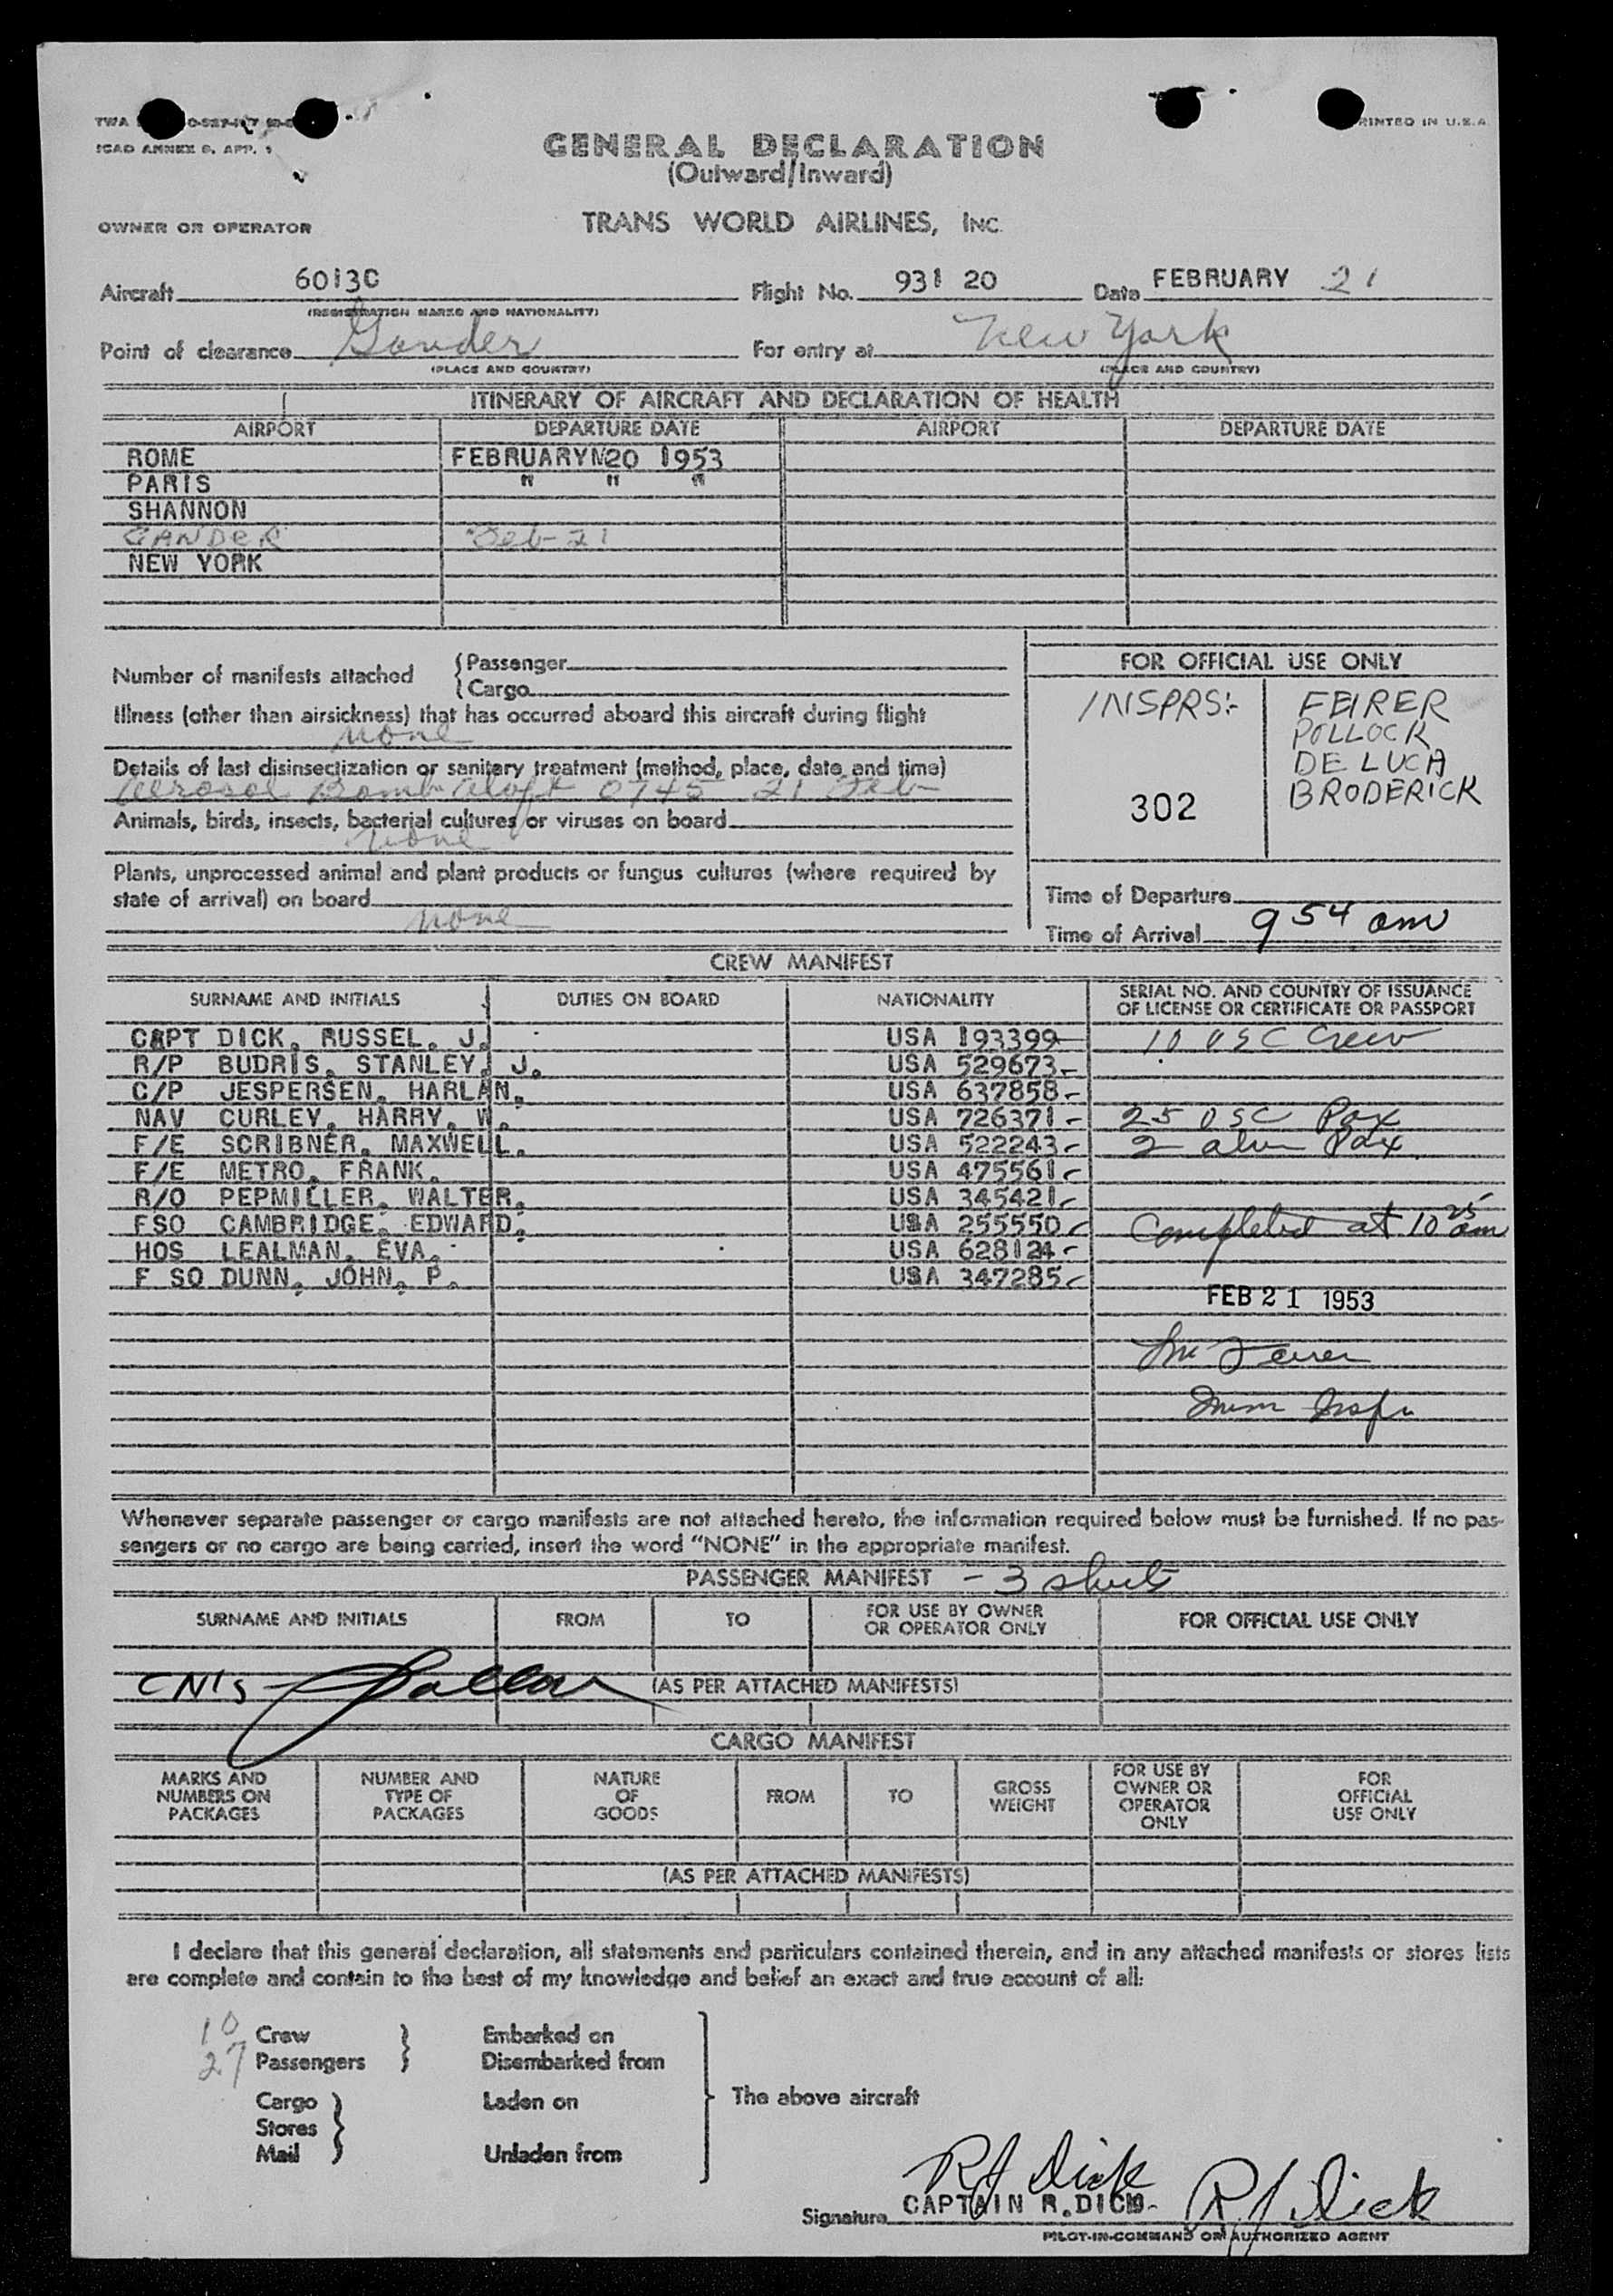 TWA
ICAO ANNEX 9, APP. 1
PRINTED IN U.S.A.
GENERAL DECLARATION
(Outward/Inward)
OWNER OR OPERATOR TRANS WORLD AIRLINES, INC.
Aircraft 6013C Flight No. 931 20 Date FEBRUARY 21
(REGISTRATION MARKS AND NATIONALITY)
Point of clearance Gander For entry at New York
(PLACE AND COUNTRY) (PLACE AND COUNTRY)
ITINERARY OF AIRCRAFT AND DECLARATION OF HEALTH
AIRPORT DEPARTURE DATE AIRPORT DEPARTURE DATE
ROME FEBRUARY 20 1953
PARIS " " "
SHANNON
GANDER Feb 21
NEW YORK
Number of manifests attached { Passenger
{ Cargo
Illness (other than airsickness) that has occurred aboard this aircraft during flight
None
Details of last disinsectization or sanitary treatment (method, place, date and time)
Aerosol Bomb Aloft 0745 21 Feb
Animals, birds, insects, bacterial cultures or viruses on board
None
Plants, unprocessed animal and plant products or fungus cultures (where required by
state of arrival) on board
None
FOR OFFICIAL USE ONLY
INSPRS:- FEIRER
POLLOCK
DE LUCA
302 BRODERICK
Time of Departure
Time of Arrival 9 54 am
CREW MANIFEST
SURNAME AND INITIALS DUTIES ON BOARD NATIONALITY SERIAL NO. AND COUNTRY OF ISSUANCE
OF LICENSE OR CERTIFICATE OR PASSPORT
CAPT DICK, RUSSEL, J. USA 193399 10 USC Crew
R/P BUDRIS, STANLEY, J. USA 529673-
C/P JESPERSEN, HARLAN, USA 637858-
NAV CURLEY, HARRY, W. USA 726371- 25 USC Pax
F/E SCRIBNER, MAXWELL. USA 522243- 2 alien Pax
F/E METRO, FRANK. USA 475561-
R/O PEPMILLER, WALTER, USA 345421-
FSO CAMBRIDGE, EDWARD, USA 255550 Completed at 10 25 am
HOS LEALMAN, EVA. USA 628124-
F SO DUNN, JOHN, P. USA 347285
FEB 21 1953
Feirer
Imm Inspr
Whenever separate passenger or cargo manifests are not attached hereto, the information required below must be furnished. If no pas-
sengers or no cargo are being carried, insert the word "NONE" in the appropriate manifest.
PASSENGER MANIFEST - 3 sheets
SURNAME AND INITIALS FROM TO FOR USE BY OWNER
OR OPERATOR ONLY FOR OFFICIAL USE ONLY
(AS PER ATTACHED MANIFESTS)
CARGO MANIFEST
MARKS AND
NUMBERS ON
PACKAGES NUMBER AND
TYPE OF
PACKAGES NATURE
OF
GOODS FROM TO GROSS
WEIGHT FOR USE BY
OWNER OR
OPERATOR
ONLY FOR
OFFICIAL
USE ONLY
(AS PER ATTACHED MANIFESTS)
I declare that this general declaration, all statements and particulars contained therein, and in any attached manifests or stores lists
are complete and contain to the best of my knowledge and belief an exact and true account of all:
10 Crew } Embarked on
27 Passengers } Disembarked from
Cargo } Laden on The above aircraft
Stores }
Mail } Unladen from
R J Dick
Signature CAPTAIN R.DICK- R J Dick
PILOT-IN-COMMAND OR AUTHORIZED AGENT